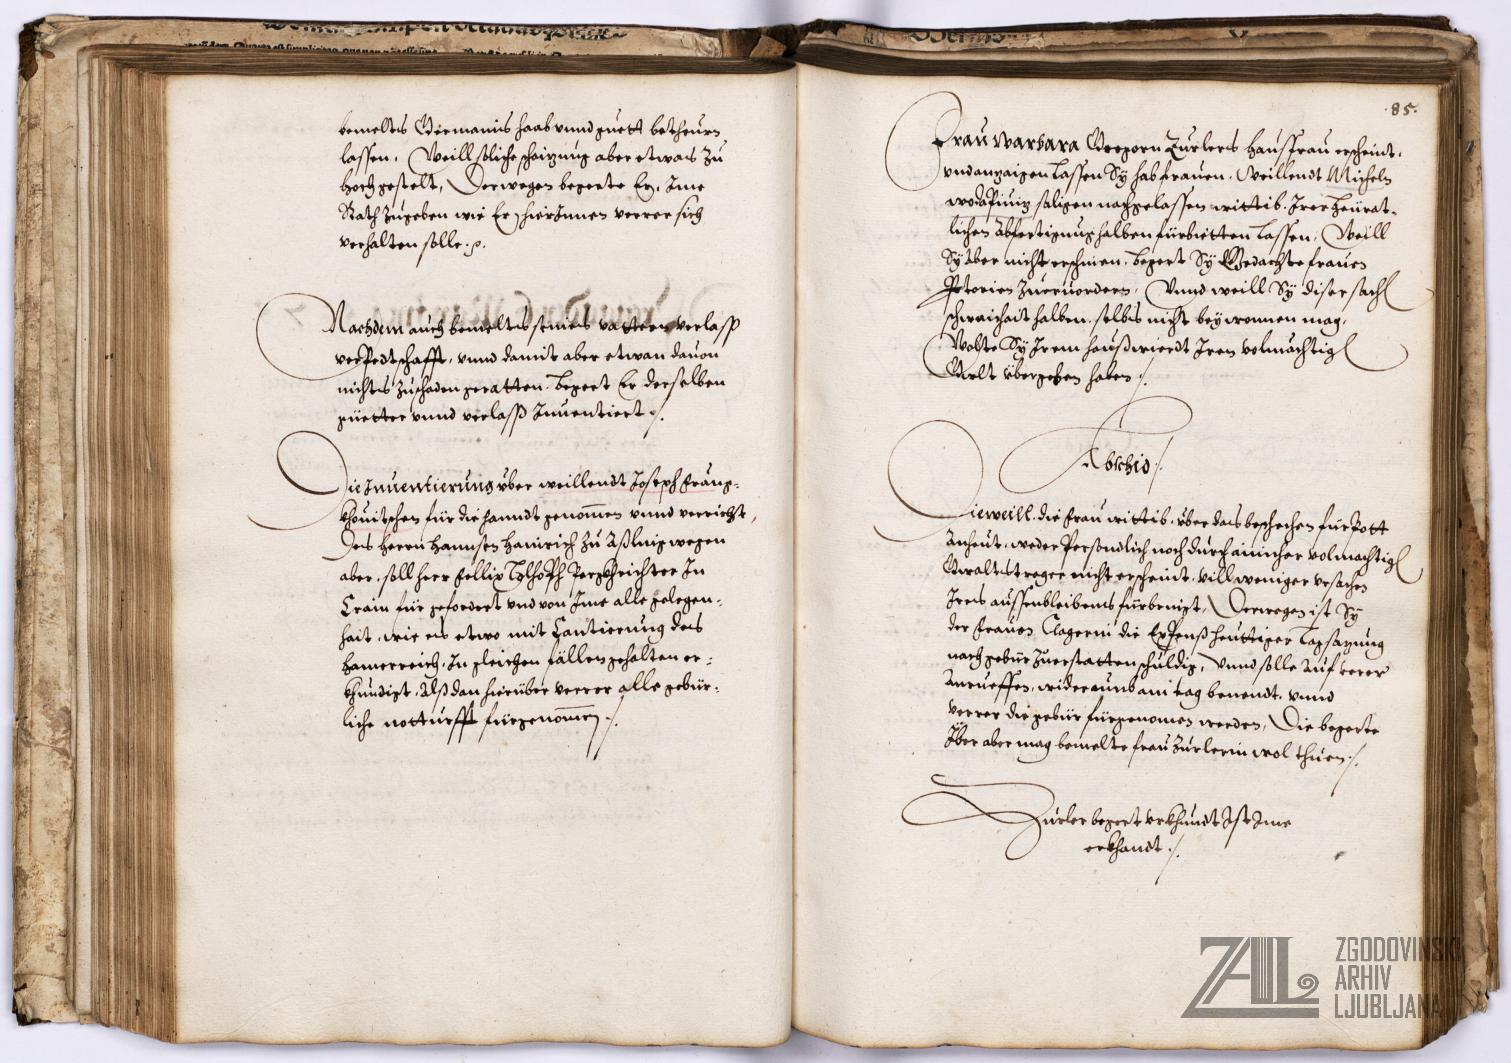 bemelts Germanis haab unnd guett betheurn
lassen, Weill soliche schaizung aber etwas zu
hoch gestelt, Derwegen begerte Er, Ime
Rath zugeben wie Er hierInnen verrer sich
verhalten solle.
Nachdem auch bemelts seines vattern verlass
verpedtschafft, unnd damit aber etwan davon
nichts zu schaden geratten. begert Er derselben
guetter unnd verlass Inventiert.
Die Inventierung uber weillendt Joseph Frang-
khovitschen für die hanndt genommen unnd verricht
Des herrn Hannsen Hainrich zu Aßling wegen
aber, soll herr Fellix Perkhrichter In
Crain für gefordert und von Ime alle gelegen-
hait, wie es etwo mit Cantierung des
hamerreich. In gleichen fällen gehalten er-
khundigt, Alß dan hierüber verrer alle gebür-
liche notturfft fürgenommen.
85.
Frau Warbara Gregorn Zurlers hausfrau erscheint,
und anzaigen lassen Sy hab frauen, Weillendt Micheln
saligen nachgelassen wittib. Irer heürat-
lichen abfertigung halben fürbietten lassen, Weill
Sy aber nicht erschinen, begert Sy Gedachte frauen
Peremptorien zueruordern, Unnd weill Sy diser sach
schwachait halben, selbs nicht beywonnen mag,
Wolte Sy Irem haußwierdt Iren volmächtig
Gwalt übergeben haben.
Abschid.
Dieweill die frau wittib, über das beschehen fürpott
Anheut, weder Persondlich noch durch ainicher volmächtig
Gwaltstrager nicht erscheint, vill weniger ursachen
Ires aussenbleibens fürbringt, Derwegen ist Sy
der frauen Clagerin die Expenß heuttiger Tagsazung
nach gebür zuerstatten schuldig, Unnd solle auf verer
Anrueffen, widerumb ain tag benendt, unnd
verrer die gebür fürgenomen werden, Die begerte
Über aber mag bemelte frau Zurlerin wol thuen.
Zurler begert urkhundt Ist Ime
erkhandt.
ZAL
ZGODOVINSKI
ARHIV
LJUBLJANA